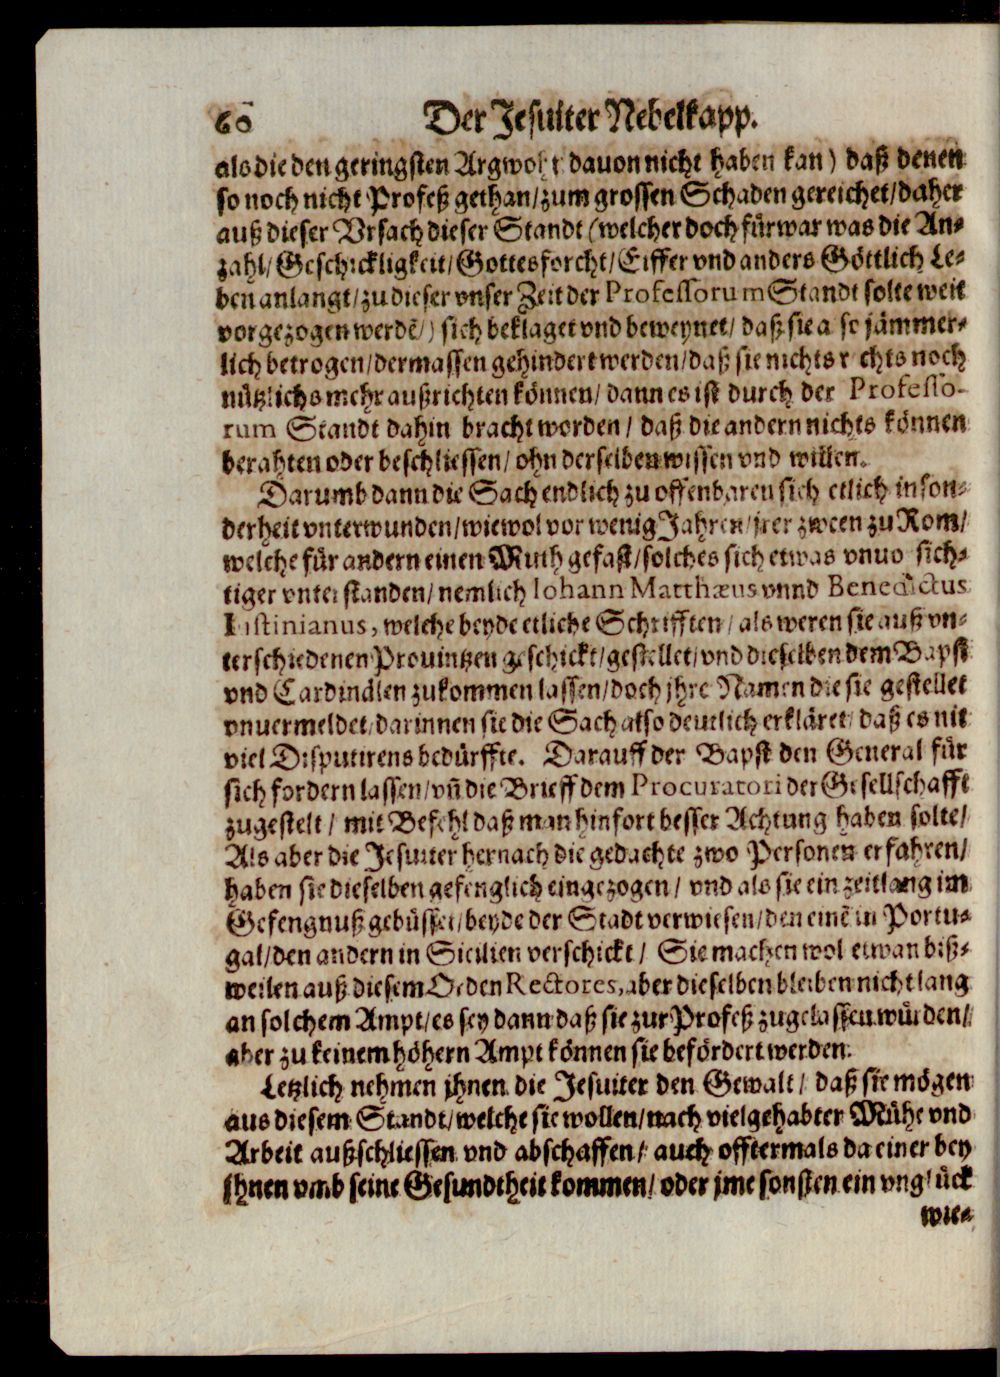 60 Der Jesuiter Nebelkapp.
als die den geringsten Argwohn davon nicht haben kan) daß denen
so noch nicht Profeß gethan/zum grossen Schaden gereichet/daher
auß dieser Vrsach dieser Standt (welcher doch fürwar was die An-
zahl/Geschickligkeit/Gottesforcht/Eiffer vnd anders Göttlich Le-
ben anlangt/zu dieser vnser Zeit der Professorum Standt solte weit
vorgezogen werdē/) sich beklaget vnd beweynet/daß sie a so jämmer-
lich betrogen/dermassen gehindert werden/daß sie nichts r chts noch
nützlichs mehr außrichten können/dann es ist durch der Professo-
rum Standt dahin bracht worden/daß die andern nichts können
berahten oder beschliessen/ohn derselben wissen vnd willen.
Darumb dann die Sach endlich zu offenbaren sich etlich inson-
derheit vnterwunden/wiewol vor wenig Jahren jrer zween zu Rom/
welche für andern einen Muth gefast/solches sich etwas vnuo sich-
tiger vnterstanden/nemlich Iohann Matthæus vnnd Benedictus
Iustinianus, welche beyde etliche Schrifften/als weren sie auß vn-
terschiedenen Prouintzen geschickt/gestellet/vnd dieselben dem Bapst
vnd Cardinälen zukommen lassen/doch jhre Namen die sie gestellet
vnuermeldet/darinnen sie die Sach also deutlich erkläret/daß es nit
viel Disputirens bedürffte. Darauff der Bapst den General für
sich fordern lassen/vñ die Brieff dem Procuratori der Gesellschafft
zugestelt/mit Befehl daß man hinfort besser Achtung haben solte/
Als aber die Jesuiter hernach die gedachte zwo Personen erfahren/
haben sie dieselben gefenglich eingezogen/vnd als sie ein zeitlang im
Gefengnuß gebüsset/beyde der Stadt verwiesen/den einē in Portu-
gal/den andern in Sicilien verschickt/Sie machen wol etwan biß-
weilen auß diesem Orden Rectores, aber dieselben bleiben nicht lang
an solchem Ampt/es sey dann daß sie zur Profeß zugelassen würden/
aber zu keinem höhern Ampt können sie befördert werden.
Letzlich nehmen jhnen die Jesuiter den Gewalt/daß sie mögen
aus diesem Standt/welche sie wollen/nach vielgehabter Mühe vnd
Arbeit außschliessen vnd abschaffen/auch offtermals da einer bey
jhnen vmb seine Gesundtheit kommen/oder jme sonsten ein vnglück
wie-